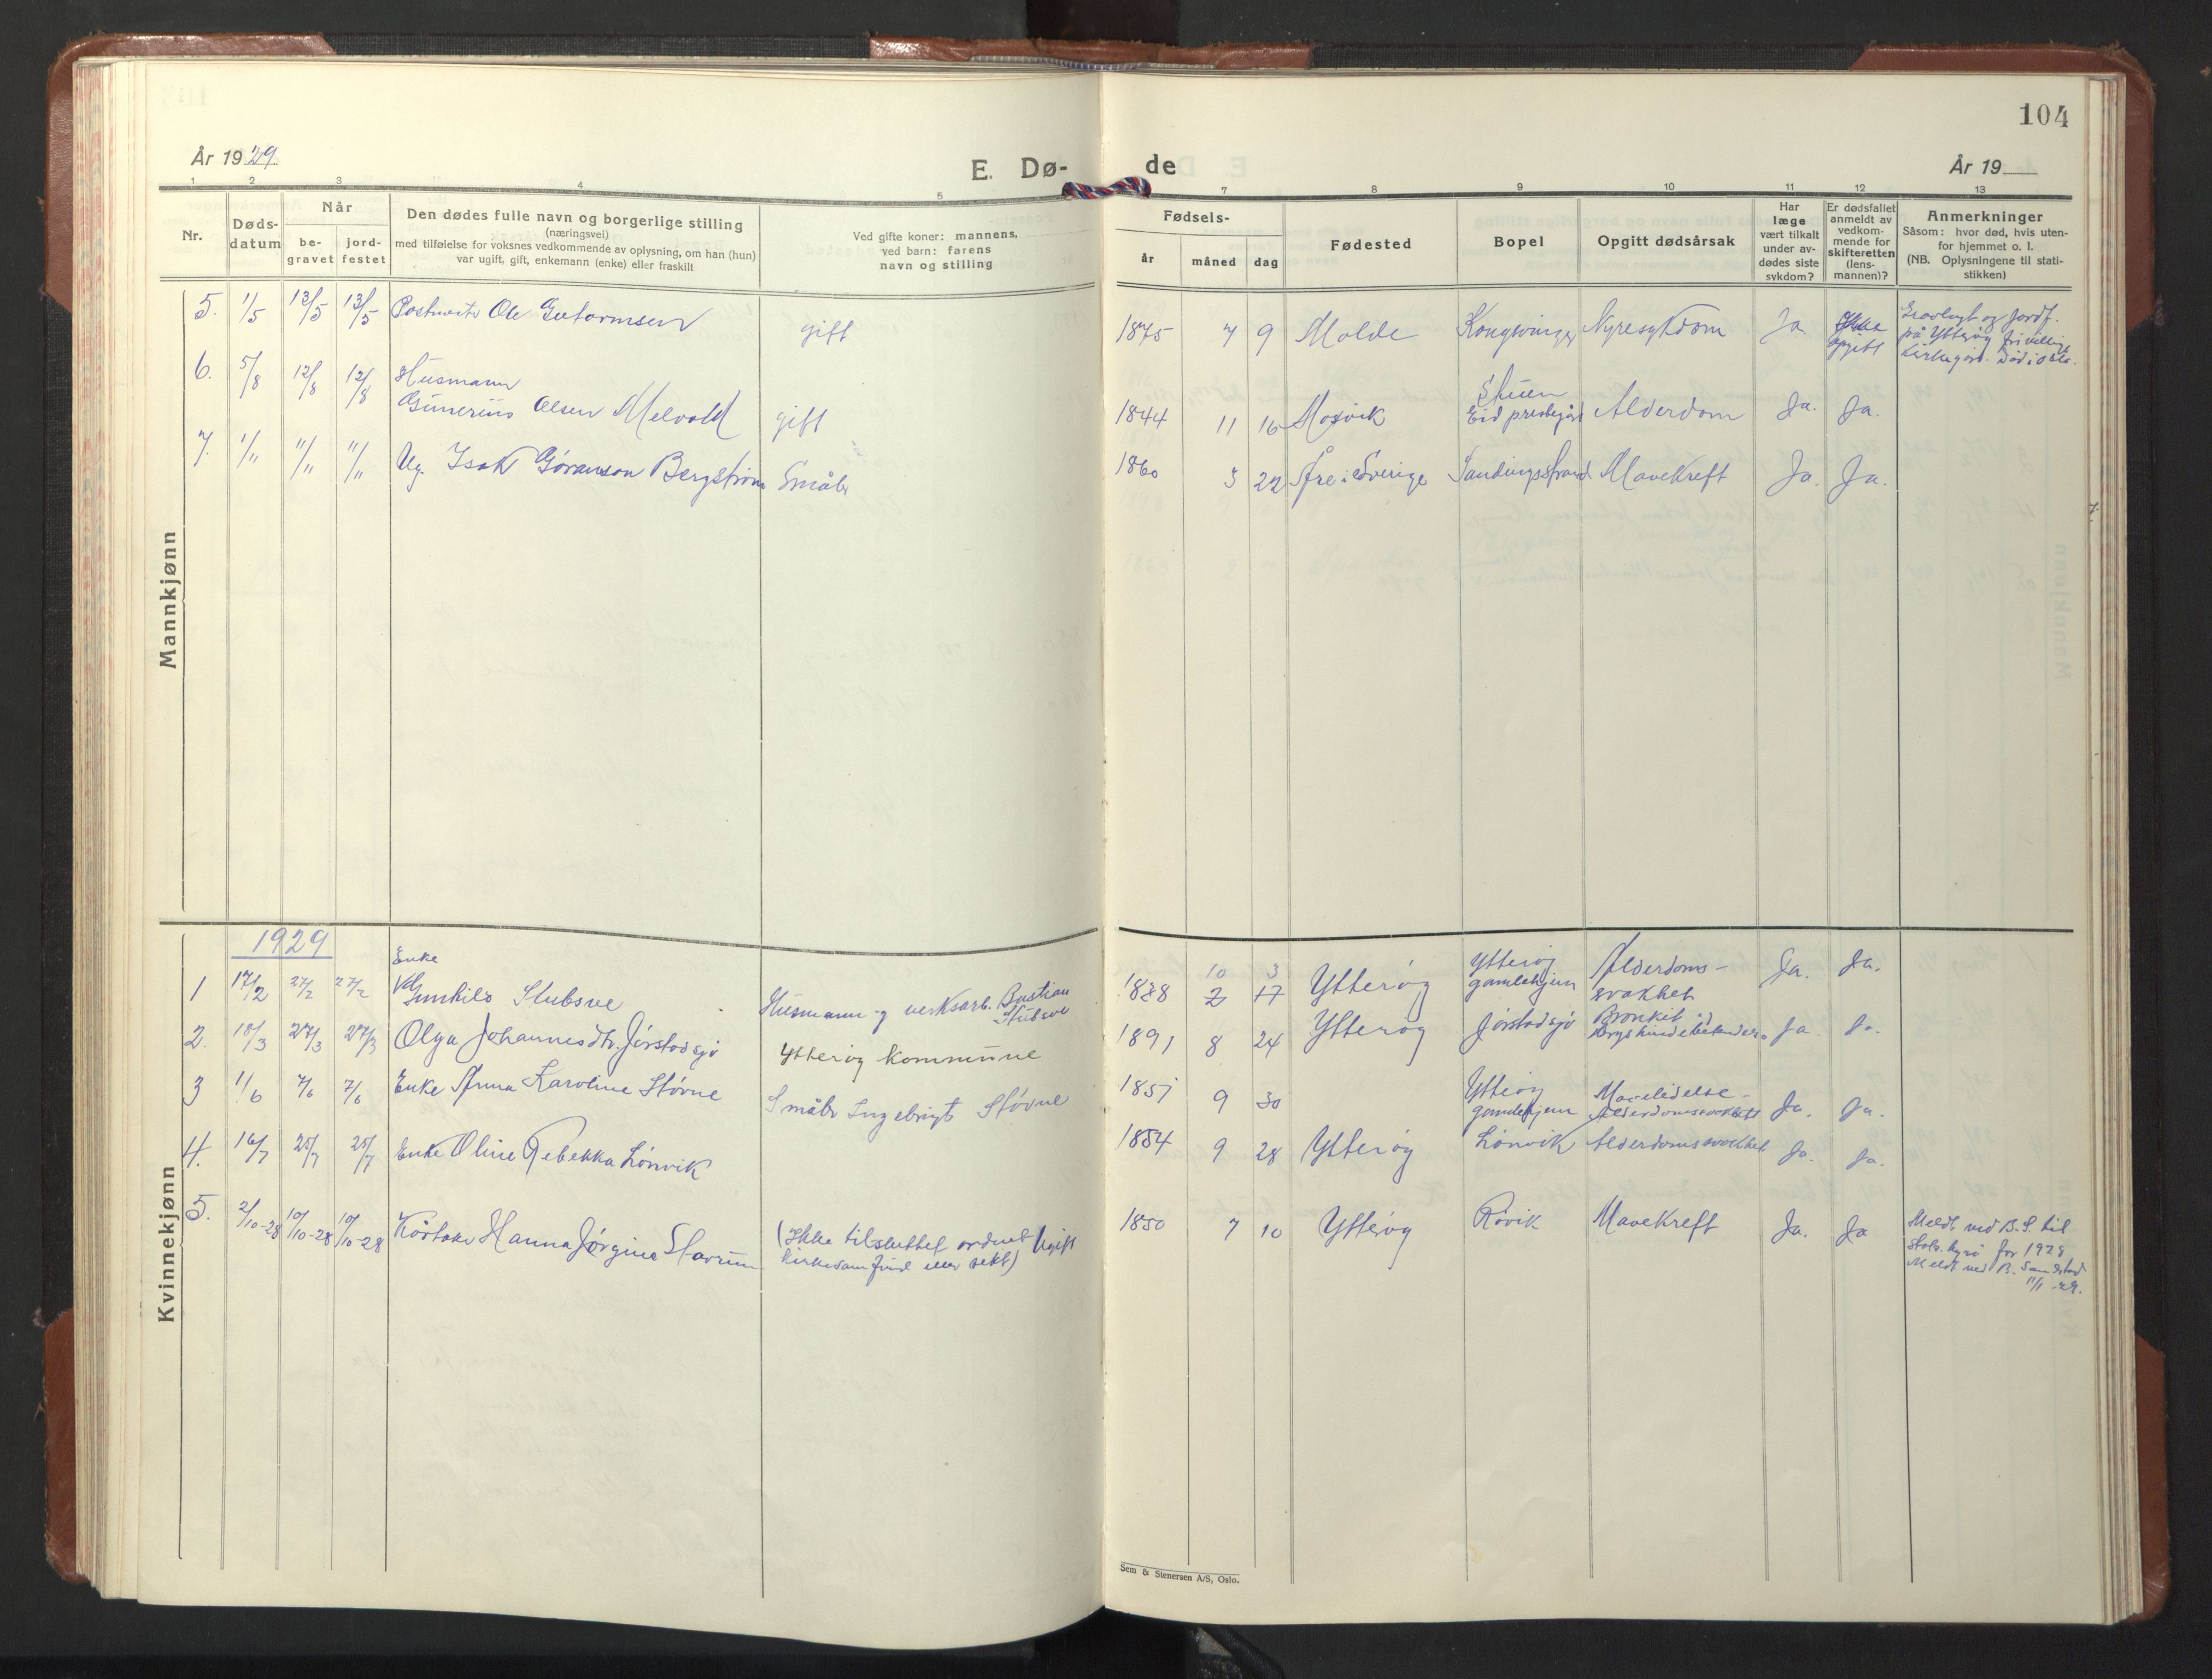 104
År 1929
E. Dø-
de
År 19
1 2 3 4 5
7 8 9 10 11 12 13
Nr.
Døds-
datum
Når
be-
gravet
jord-
festet
Den dødes fulle navn og borgerlige stilling
(næringsvei)
med tilføielse for voksnes vedkommende av oplysning, om han (hun)
var ugift, gift, enkemann (enke) eller fraskilt
Ved gifte koner: mannens,
ved barn: farens
navn og stilling
Fødsels-
år måned dag
Fødested
Bopel
Opgitt dødsårsak
Har
læge
vært tilkalt
under av-
dødes siste
sykdom?
Er dødsfallet
anmeldt av
vedkom-
mende for
skifteretten
(lens-
mannen)?
Anmerkninger
Såsom: hvor død, hvis uten-
for hjemmet o. l.
(NB. Oplysningene til stati-
stikken)
Mannkjønn
5. 1/5 13/5 13/5 Ole Gutormsen gift 1875 7 9 Molde Kongsvinger Nyresykdom Ja Ikke
opgitt
Gravlagt og jordf.
på Ytterøy frivillige
kirkegård. Død i Oslo.
6. 5/8 12/8 12/8 Husmann
Gunerius Olsen Melvold gift 1844 11 16 Mosvik Stuen
Eid prestegård Alderdom Ja. Ja.
7. 1/11 11/11 11/11 Ug. Isak Göranson Bergström Småbr 1860 3 22 Åre i Sverige Sandingsstrand Mavekreft Ja. Ja.
Kvinnekjønn
1929
1 17/2 27/2 27/2 Enke
Gunhild Stubsve Husmann og verksarb. Bastian
Stubsve 1838 10 3
2 17 Ytterøy Ytterøy
gamlehjem Alderdoms-
svakhet Ja. Ja.
2. 18/3 27/3 27/3 Olga Johannesdtr. Jørstadsjø Ytterøy kommune 1891 8 24 Ytterøy Jørstadsjø Bronkit og
Ja. Ja.
3 1/6 7/6 7/6 Enke Anna Karoline Støvne Småbr Ingebrigt Støvne 1851 9 30 Ytterøy
gamlehjem Mavelidelse-
Alderdomssvakhet Ja. Ja.
4. 16/7 25/7 25/7 Enke Oline Rebekka Lønvik 1854 9 28 Ytterøy Lønvik Alderdomssvakhet Ja. Ja.
5. 2/10-28 10/10-28 10/10-28 Hanna Jørgine Stavrum (Ikke tilsluttet ordnet Ugift
kirkesamfund eller sekt) 1850 7 10 Ytterøy Røvik Mavekreft Ja. Ja
Meldt ved B. S. til
Stat. byrå for 1928
Meldt ved B. Sandstad
11/1 -29.
Sem & Stenersen A/S, Oslo.